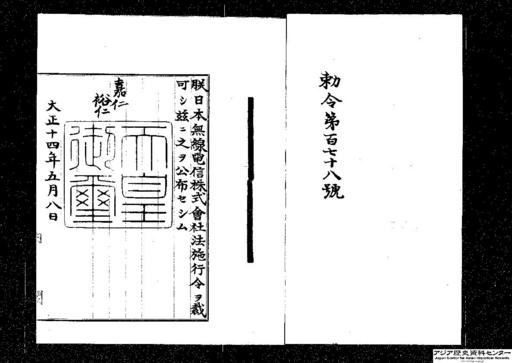 勅令第百七十八號
朕日本無線電信株式會社法施行令ヲ裁
可シ茲ニ之ヲ公布セシム
嘉仁
裕仁
天皇
御璽
大正十四年五月八日
アジア歴史資料センター
Japan Center for Asian Historical Records